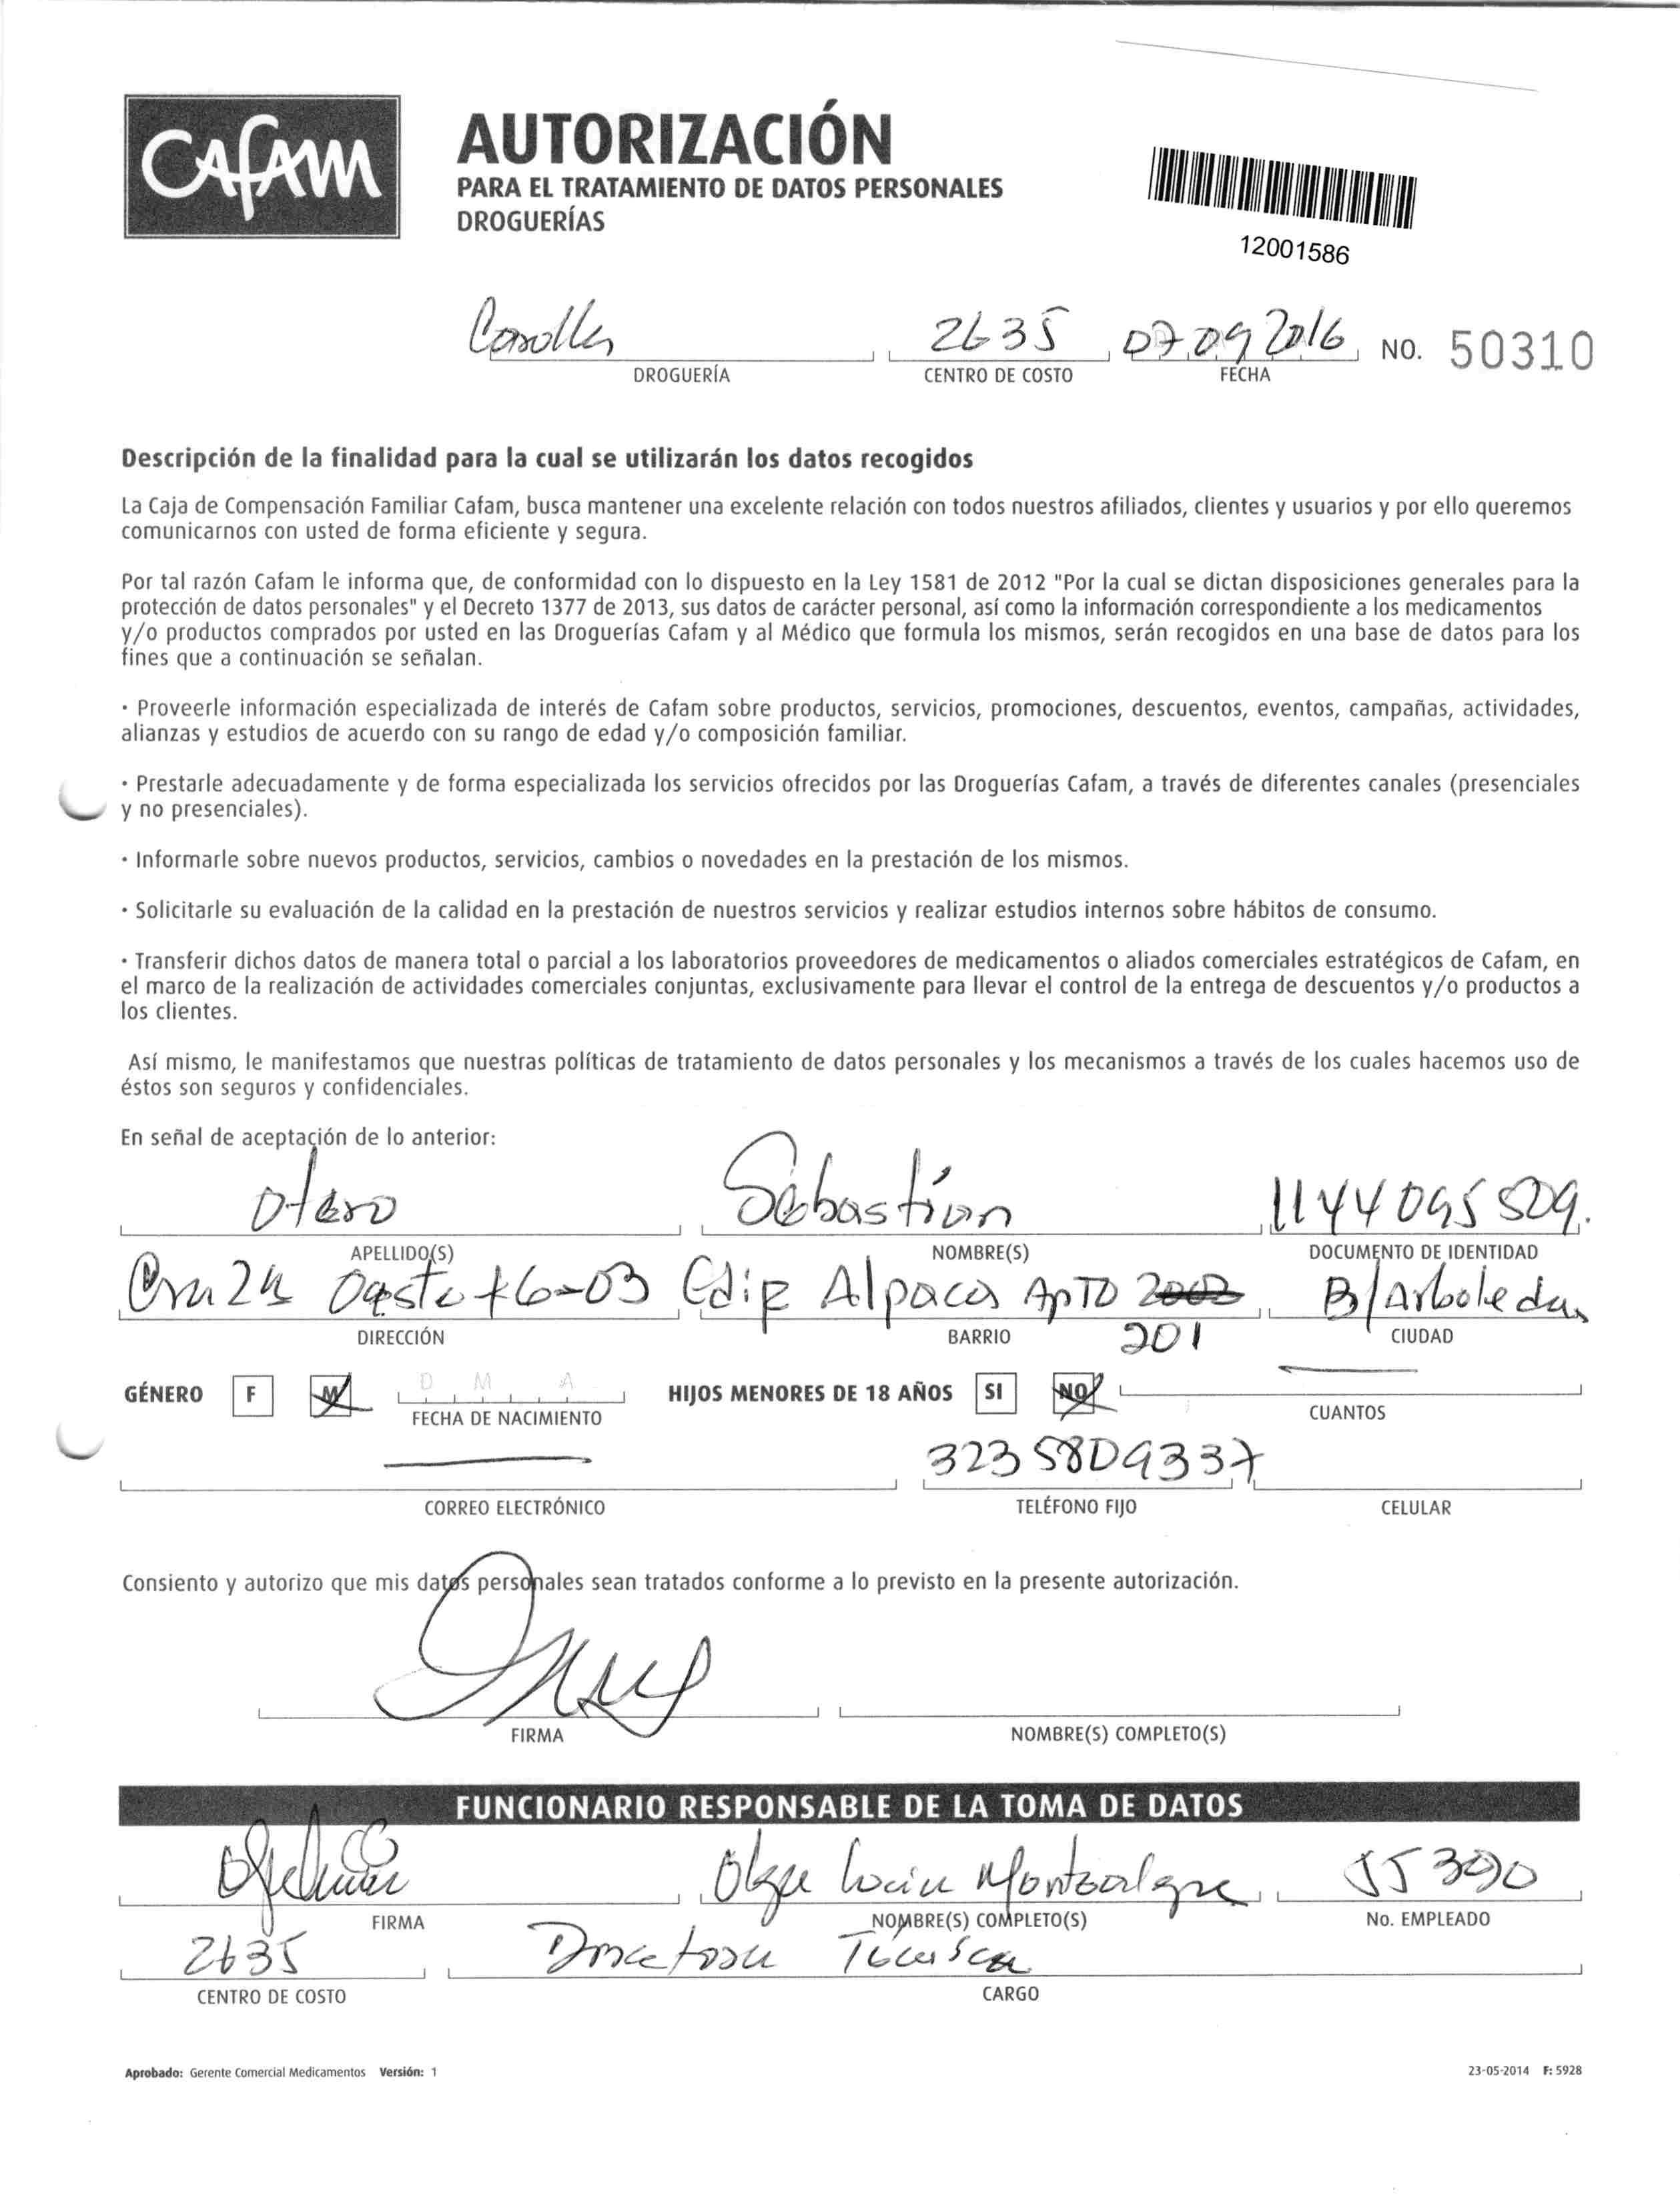 CAFAM
AUTORIZACIÓN
PARA EL TRATAMIENTO DE DATOS PERSONALES
DROGUERÍAS
12001586
2635 07 09 2016 NO. 50310
DROGUERÍA CENTRO DE COSTO FECHA
Descripción de la finalidad para la cual se utilizarán los datos recogidos
La Caja de Compensación Familiar Cafam, busca mantener una excelente relación con todos nuestros afiliados, clientes y usuarios y por ello queremos
comunicarnos con usted de forma eficiente y segura.
Por tal razón Cafam le informa que, de conformidad con lo dispuesto en la Ley 1581 de 2012 "Por la cual se dictan disposiciones generales para la
protección de datos personales" y el Decreto 1377 de 2013, sus datos de carácter personal, así como la información correspondiente a los medicamentos
y/o productos comprados por usted en las Droguerías Cafam y al Médico que formula los mismos, serán recogidos en una base de datos para los
fines que a continuación se señalan.
· Proveerle información especializada de interés de Cafam sobre productos, servicios, promociones, descuentos, eventos, campañas, actividades,
alianzas y estudios de acuerdo con su rango de edad y/o composición familiar.
· Prestarle adecuadamente y de forma especializada los servicios ofrecidos por las Droguerías Cafam, a través de diferentes canales (presenciales
y no presenciales).
· Informarle sobre nuevos productos, servicios, cambios o novedades en la prestación de los mismos.
· Solicitarle su evaluación de la calidad en la prestación de nuestros servicios y realizar estudios internos sobre hábitos de consumo.
· Transferir dichos datos de manera total o parcial a los laboratorios proveedores de medicamentos o aliados comerciales estratégicos de Cafam, en
el marco de la realización de actividades comerciales conjuntas, exclusivamente para llevar el control de la entrega de descuentos y/o productos a
los clientes.
Así mismo, le manifestamos que nuestras políticas de tratamiento de datos personales y los mecanismos a través de los cuales hacemos uso de
éstos son seguros y confidenciales.
En señal de aceptación de lo anterior:
Otero Sebastián 1144095509.
APELLIDO(S) NOMBRE(S) DOCUMENTO DE IDENTIDAD
Cra 24 Oeste #6-03 Edif Alpaca Apto B/Arboledas
DIRECCIÓN BARRIO 201 CIUDAD
GÉNERO F M D M A HIJOS MENORES DE 18 AÑOS SI NO
FECHA DE NACIMIENTO CUANTOS
3235809337
CORREO ELECTRÓNICO TELÉFONO FIJO CELULAR
Consiento y autorizo que mis datos personales sean tratados conforme a lo previsto en la presente autorización.
FIRMA NOMBRE(S) COMPLETO(S)
FUNCIONARIO RESPONSABLE DE LA TOMA DE DATOS
Olga Lucia Montealegre 55390
FIRMA NOMBRE(S) COMPLETO(S) No. EMPLEADO
2635 Directora Técnica
CENTRO DE COSTO CARGO
Aprobado: Gerente Comercial Medicamentos Versión: 1 23-05-2014 F: 5928